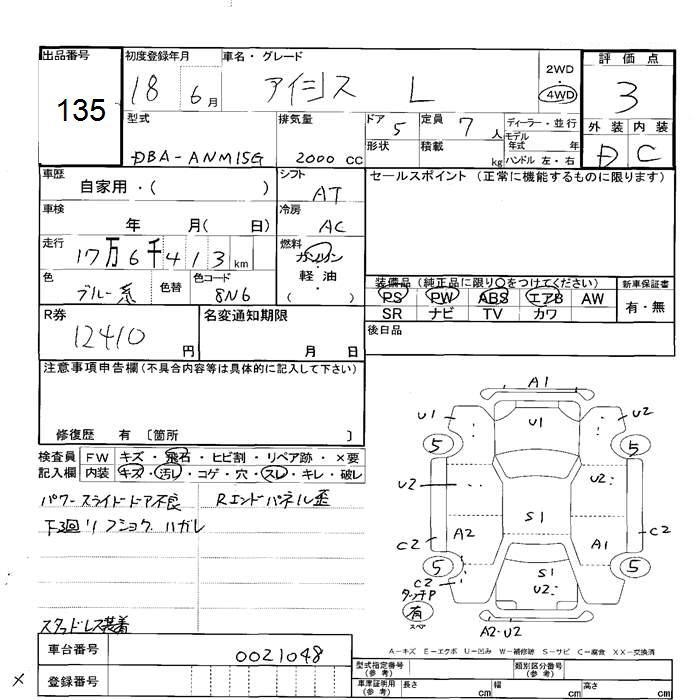 出品番号
135
初度登録年月
18 6月
車名・グレード
アイシス L
2WD
4WD
評価点
3
型式
DBA-ANM15G
排気量
2000 cc
ドア 5
形状
定員 7 人
積載 kg
ディーラー・並行
モデル年式 年
ハンドル 左・右
外装 内装
D C
車歴
自家用・( )
シフト
AT
セールスポイント(正常に機能するものに限ります)
車検
年 月( 日)
冷房
AC
走行
17万6千413km
燃料
ガソリン
・
軽油
( )
色
ブルー系
色替
色コード
8N6
装備品(純正品に限り○をつけてください)
PS PW ABS エアB AW
SR ナビ TV カワ
新車保証書
有・無
R券
12410 円
名変通知期限
月 日
後日品
注意事項申告欄(不具合内容等は具体的に記入して下さい)
修復歴 有 〔箇所 〕
検査員記入欄
FW キズ・飛石・ヒビ割・リペア跡・×要
内装 キズ・汚レ・コゲ・穴・スレ・キレ・破レ
パワースライドドア不良 Rエンドパネル歪
下3回リ フショク ハガレ
スタッドレス装着
A1
U1
U1
U2
5
5
U2
U2
S1
C2
C2
A2
A1
5
5
S1
U2
C2
タッチP
有
スペア
A2・U2
A-キズ E-エクボ U-凹み W-補修跡 S-サビ C-腐食 XX-交換済
車台番号
0021048
登録番号
×
型式指定番号
(参考)
類別区分番号
(参考)
車庫証明用
(参考)
長さ cm
幅 cm
高さ cm